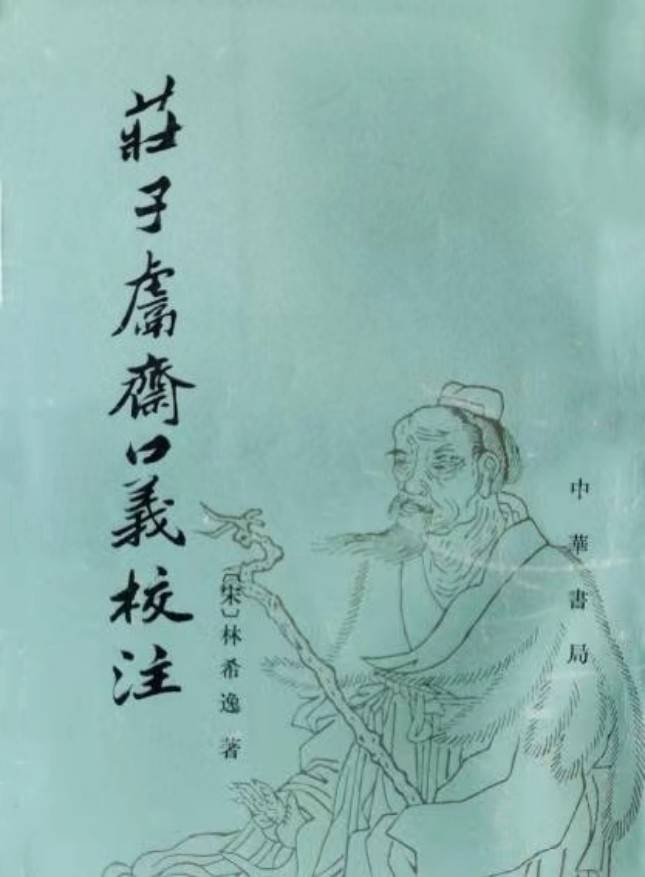 莊子鬳齋口義校注
〔宋〕林希逸著
中華書局